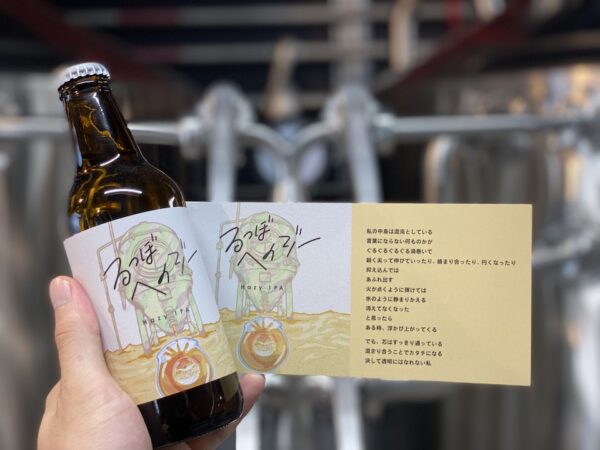 るつぼ
ヘイジー
Hazy IPA
るつぼ
ヘイジー
Hazy IPA
私の中身は混沌としている
言葉にならない何ものかが
ぐるぐるぐるぐる渦巻いて
鋭く尖って伸びていったり、絡まり合ったり、円くなったり
抑え込んでは
あふれ出す
火が点くように弾けては
水のように静まりかえる
消えてなくなった
と思ったら
ある時、浮かび上がってくる
でも、芯はすっきり通っている
混ざり合うことでカタチになる
決して透明にはなれない私